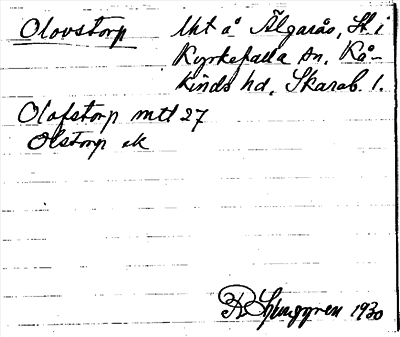 Olovstorp Uht å Älgarås, Sk. i
Kyrkefalla sn, Kå-
kinds hd, Skarab. l.
Olofstorp mtl 27
Olstorp ek
R Ljunggren 1930